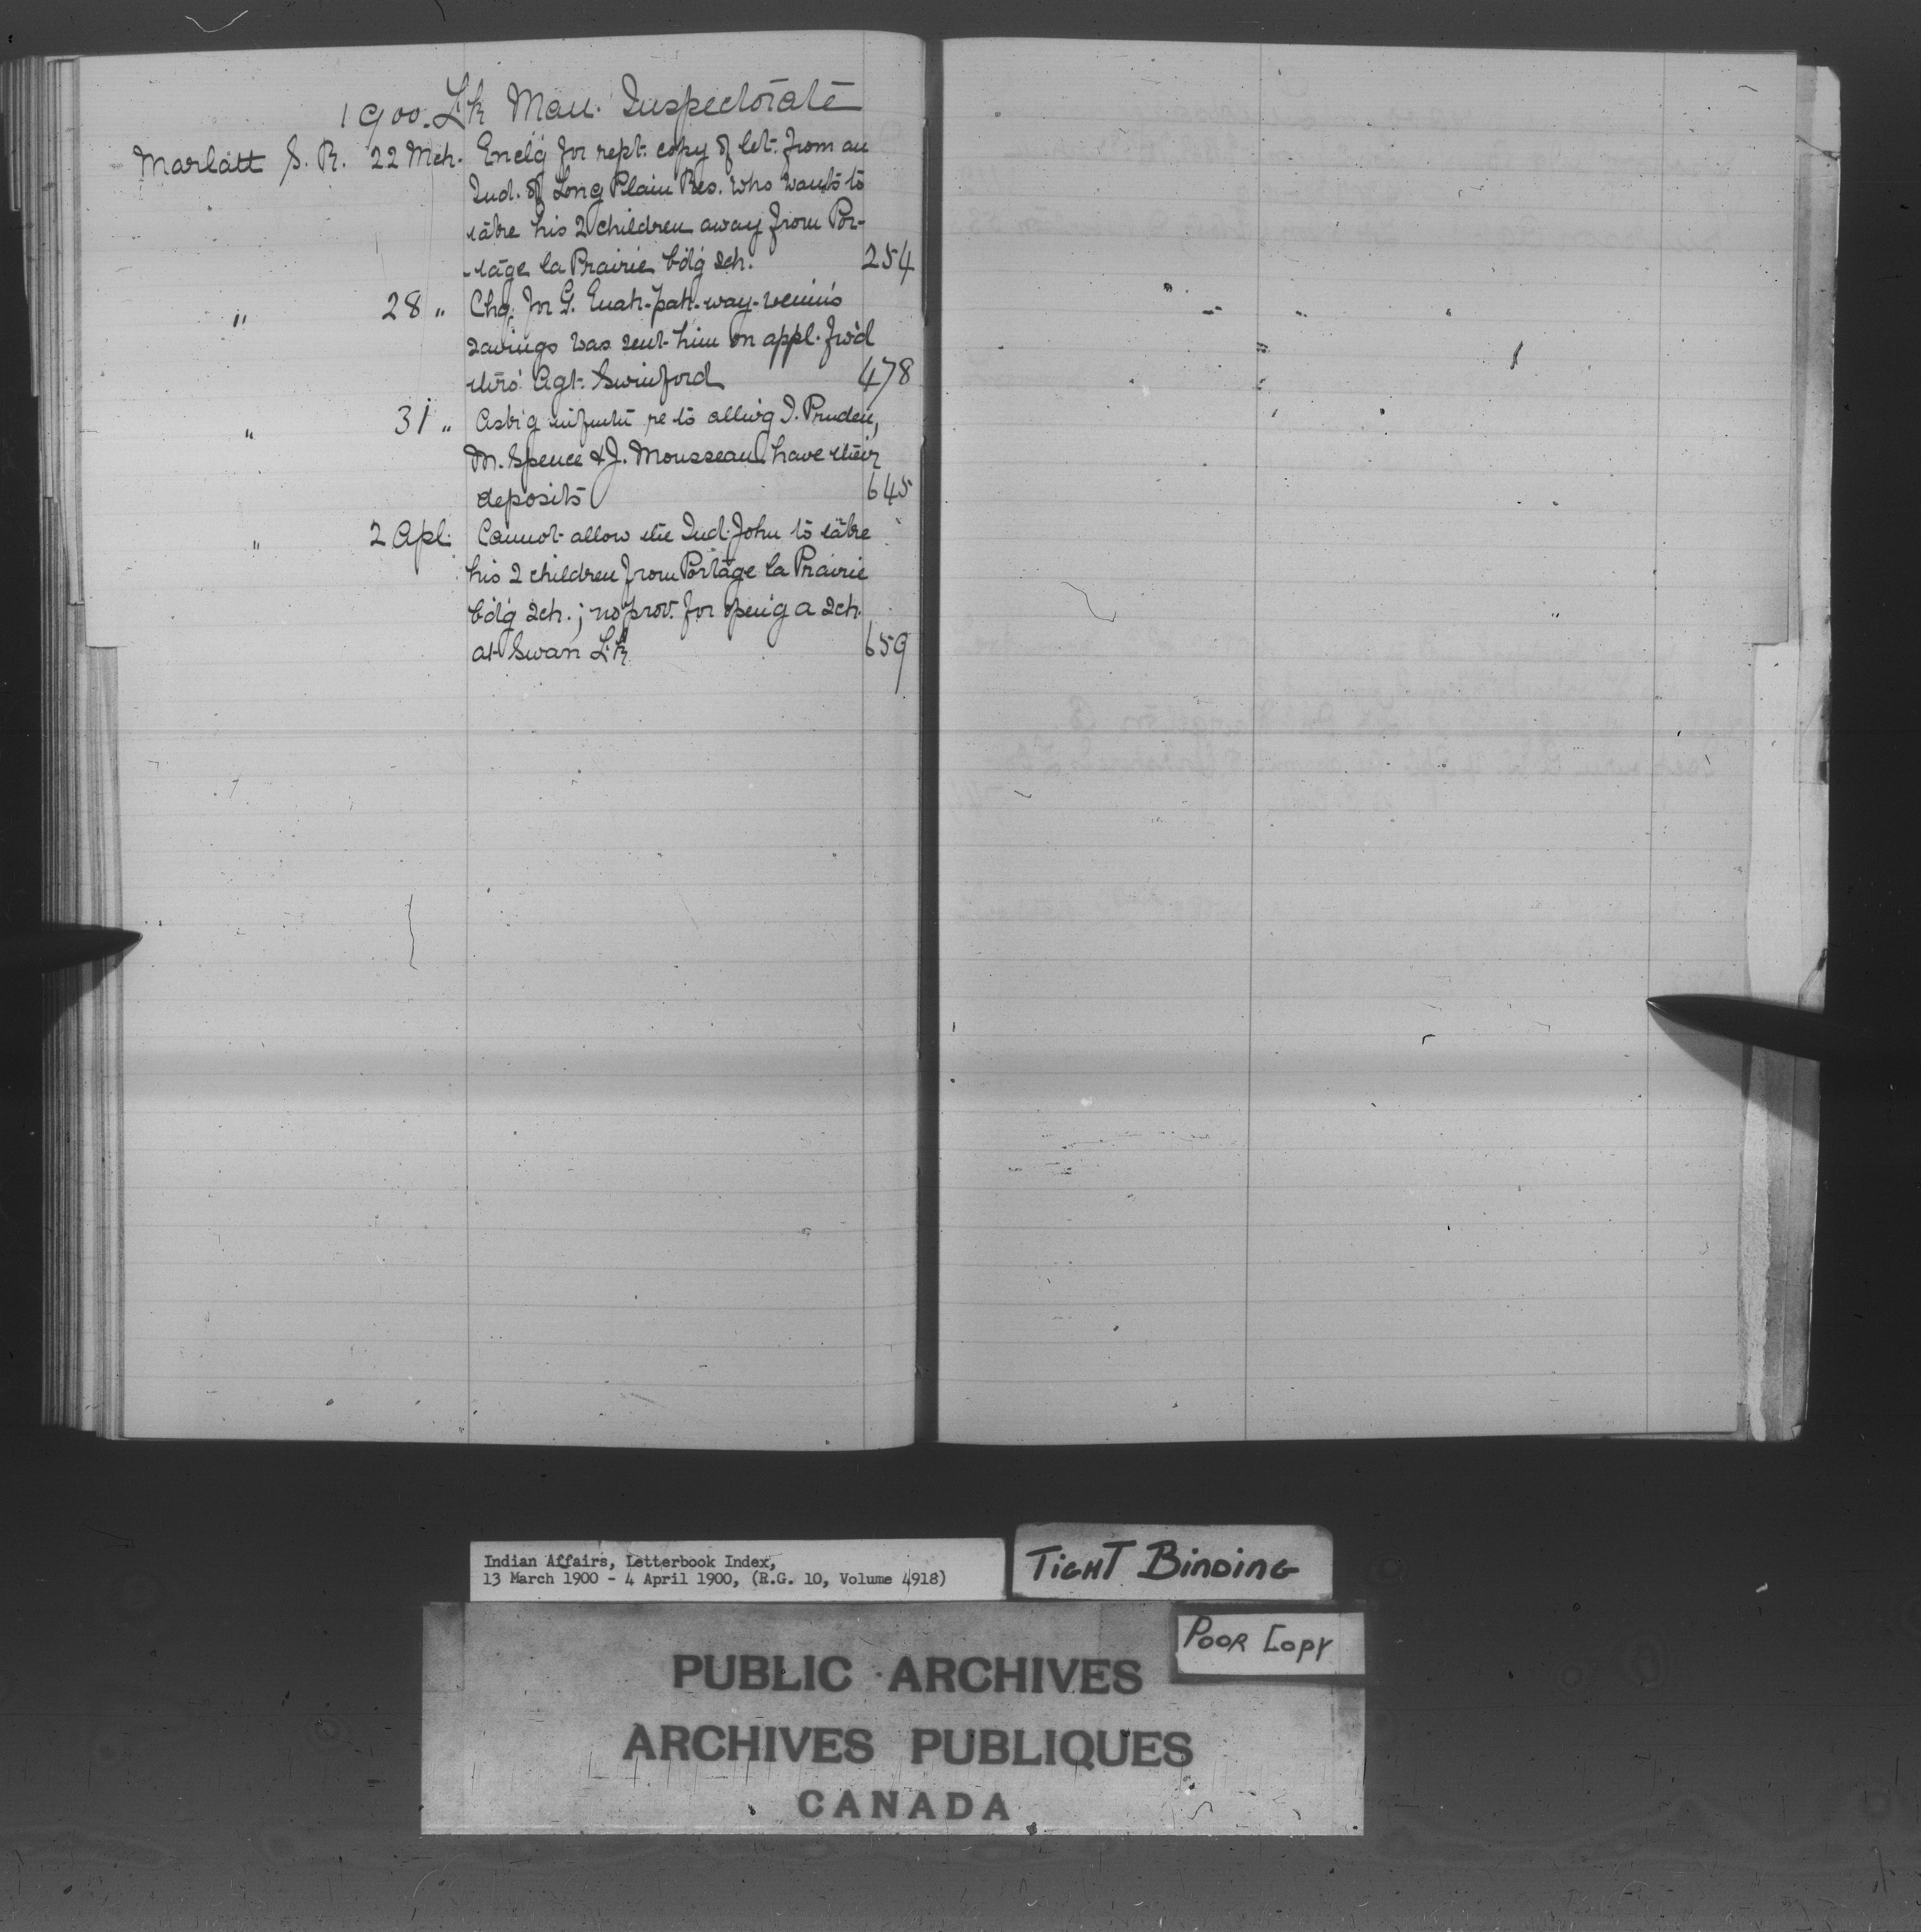 1900. Lk Man. Inspectorate
Marlatt S. R. 22 Mch. Encl'g for rept. copy of let. from an
Ind. of Long Plain Res. who wants to
take his 2 children away from Por-
-tage la Prairie b'd'g sch. 254
" 28 " Chq. for G. Enah-pah-way-wenin's
savings was sent him on appl. fw'd
thro' Agt. Swinford 478
" 31 " Ask'g re to allw'g I. Pruden,
M. Spence & J. Mousseau have their
deposits 645
" 2 Apl. Cannot allow the Ind. John to take
his 2 children from Portage la Prairie
b'd'g sch. ; no prov. for open'g a sch.
at Swan Lk 659
Indian Affairs, Letterbook Index,
13 March 1900 - 4 April 1900, (R.G. 10, Volume 4918)
TIGHT BINDING
POOR COPY
PUBLIC ARCHIVES
ARCHIVES PUBLIQUES
CANADA